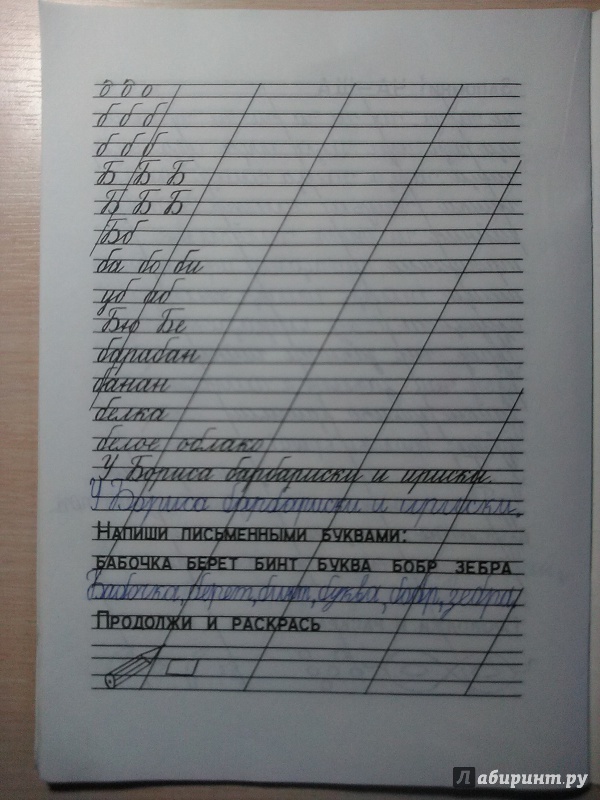 б б б
б б б
б б б
Б Б Б
Б Б Б
Бб
ба бо би
уб аб
Бю Бе
барабан
банан
белка
белое облако
У Бориса барбариски и ириски.
У Бориса барбариски и ириски.
Напиши письменными буквами:
бабочка берет бинт буква бобр зебра
Бабочка, берет, бинт, буква, бобр, зебра,
Продолжи и раскрась
Лабиринт.ру